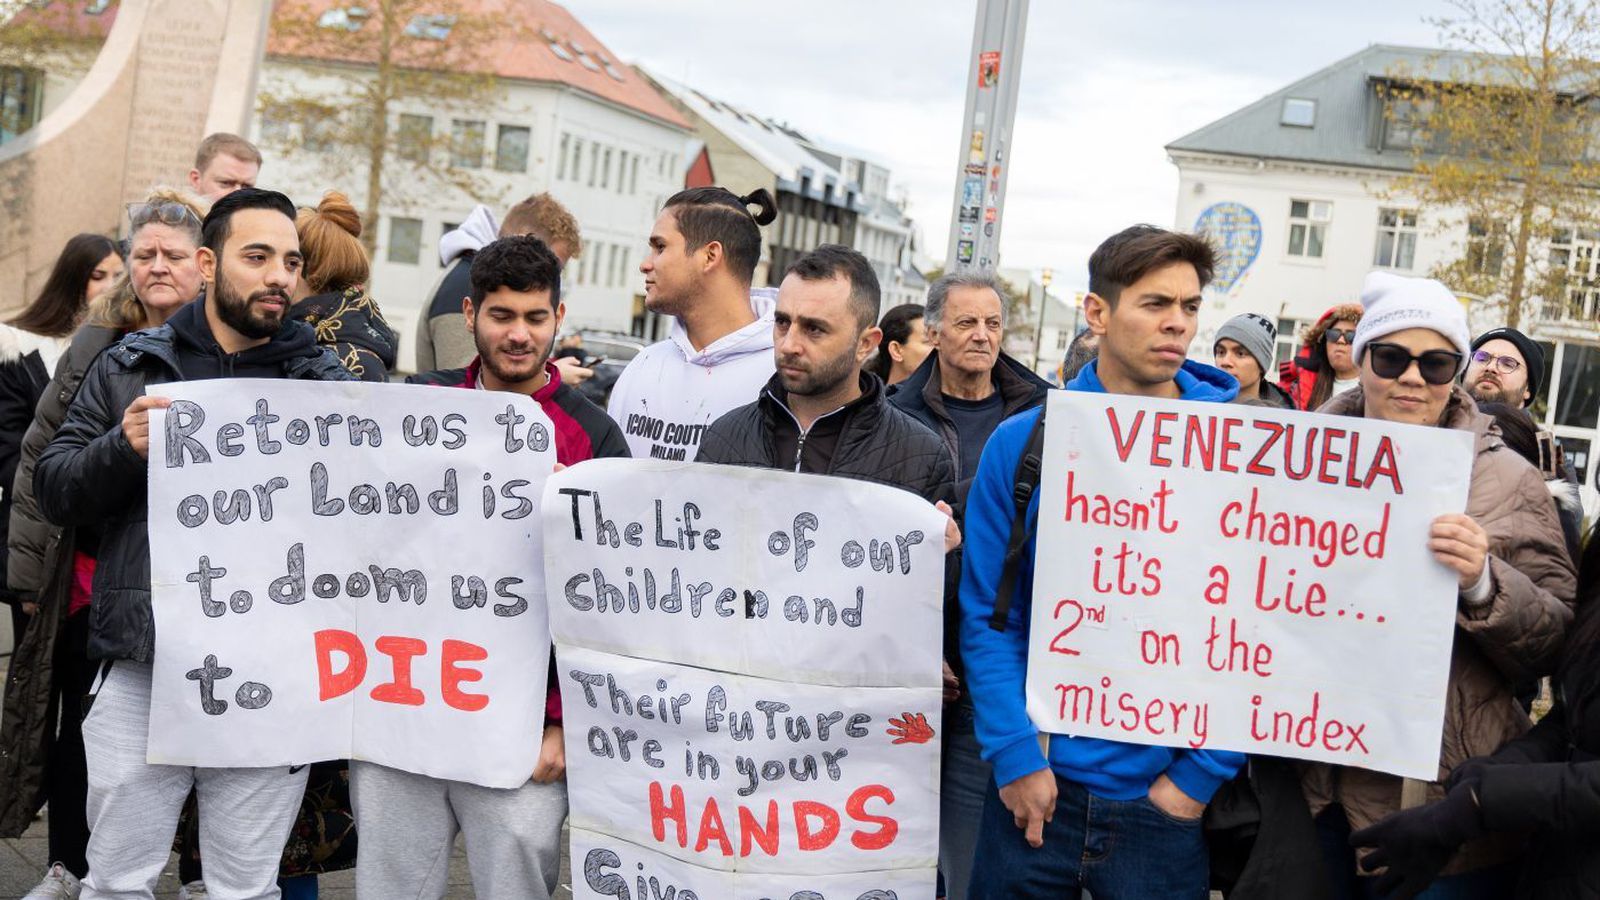 Retorn us to
our Land is
to doom us
to DIE
ICONO COUTU
MILANO
The Life of our
children and
Their fuTure
are in your
HANDS
Give
VENEZUELA
hasn't changed
it's a lie...
2nd on the
misery index